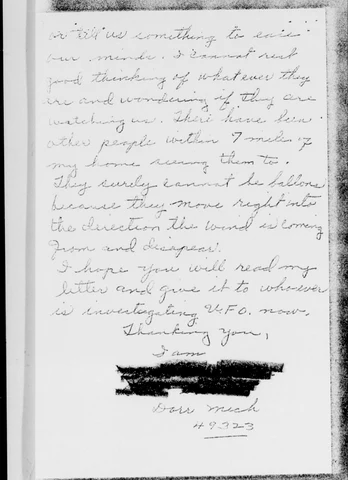 or tell us something to ease
our minds. I cannot rest
good thinking of what ever they
are and wondering if they are
watching us. There have been
other people within 7 miles of
my home seeing them to.
They surely cannot be ballons
because they move right into
the direction the wind is coming
from and disapear.
I hope you will read my
letter and give it to whoever
is investigating U.F.O. now.
Thanking you,
I am
Dorr Mich
49323